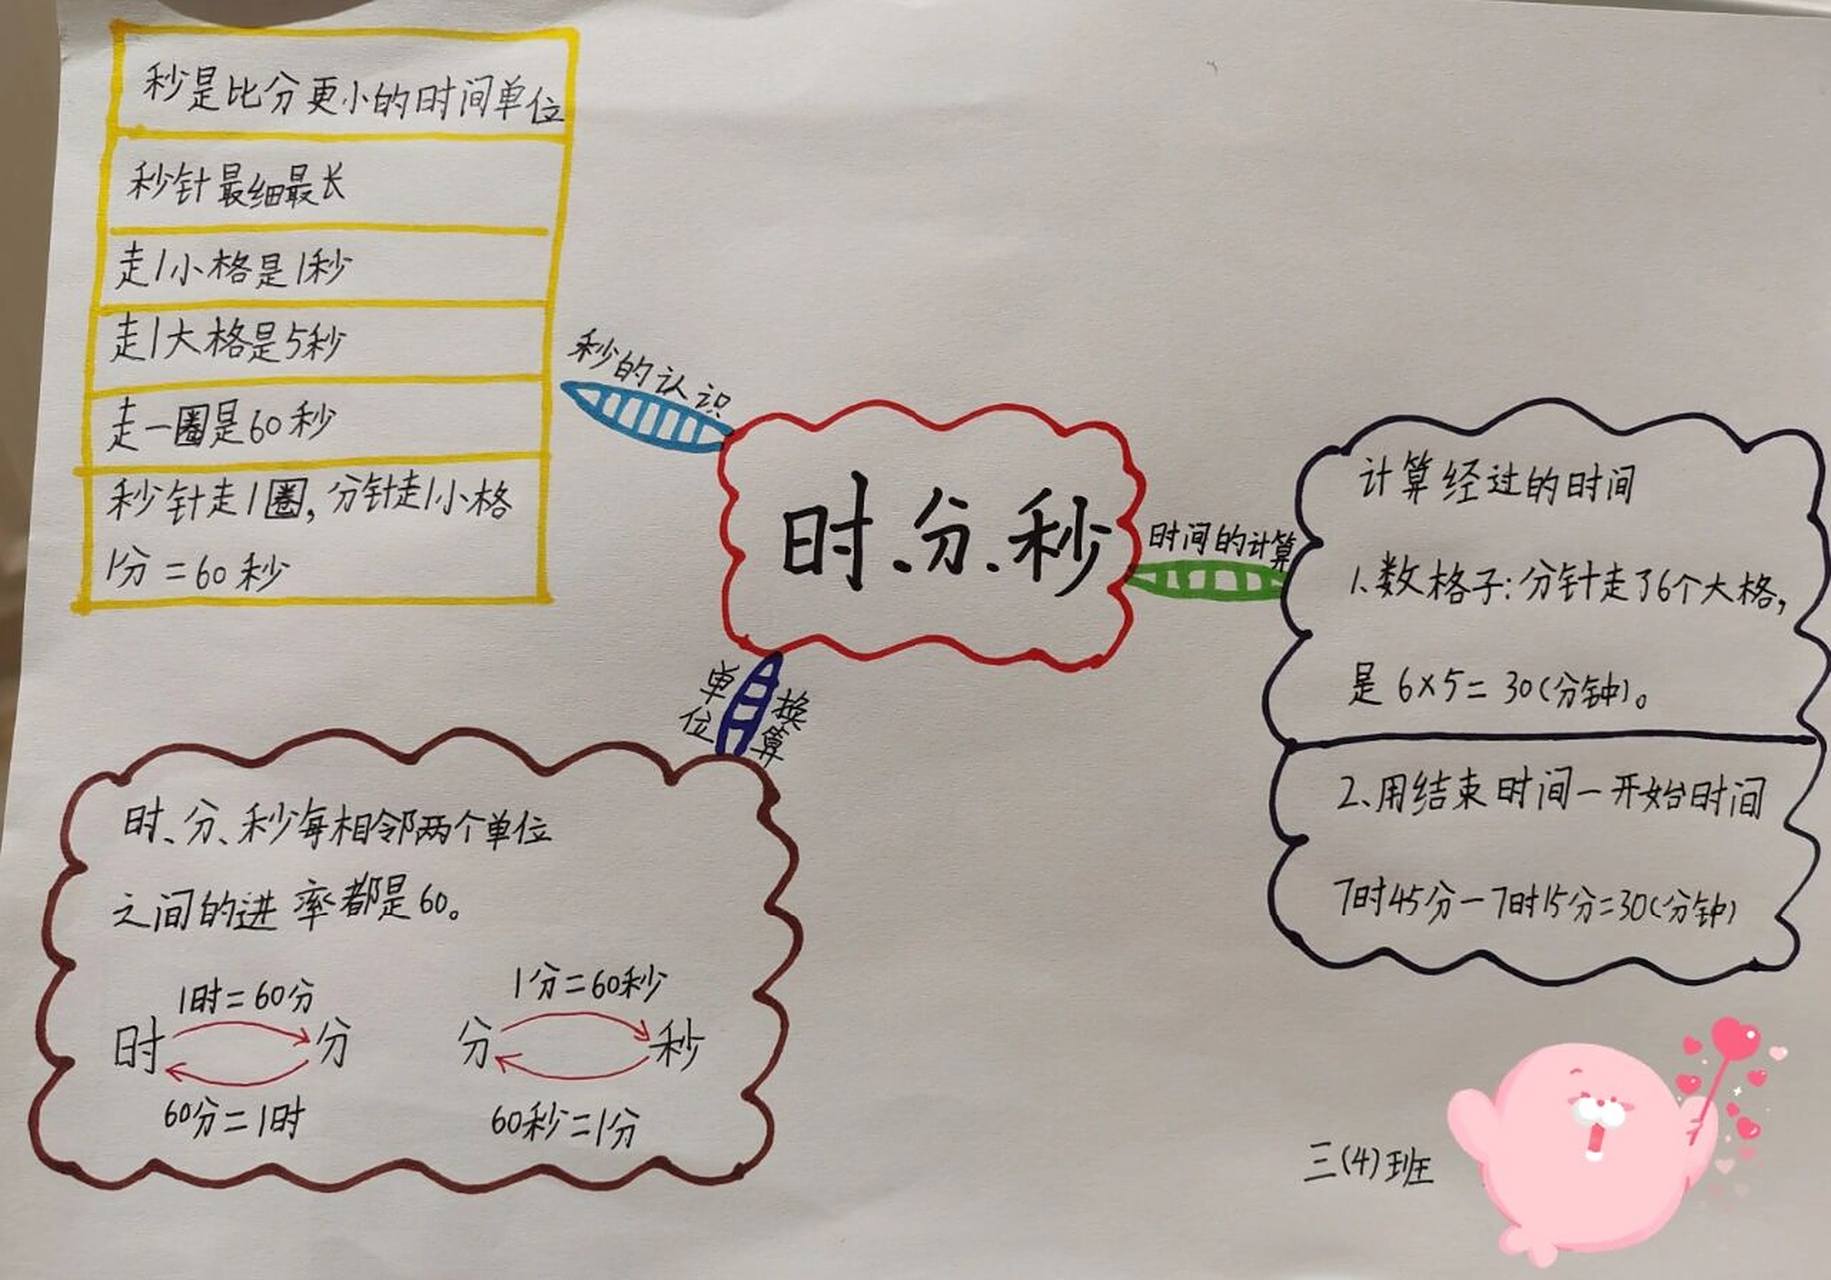 秒是比分更小的时间单位
秒针最细最长
走1小格是1秒
走1大格是5秒
走一圈是60秒
秒针走1圈,分针走1小格
1分=60秒
秒的认识
时、分、秒
时间的计算
计算经过的时间
1、数格子:分针走了6个大格,
是6×5=30(分钟)。
2、用结束时间-开始时间
7时45分-7时15分=30(分钟)
单位换算
时、分、秒每相邻两个单位
之间的进率都是60。
1时=60分
时 分
60分=1时
1分=60秒
分 秒
60秒=1分
三(4)班